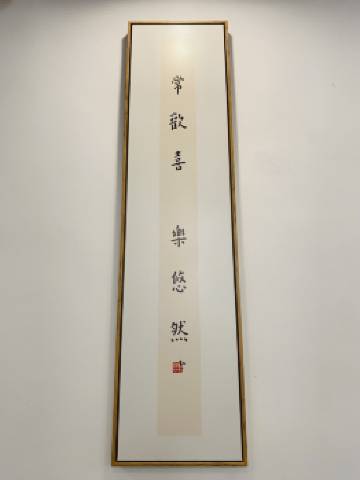 常歡喜 樂悠然